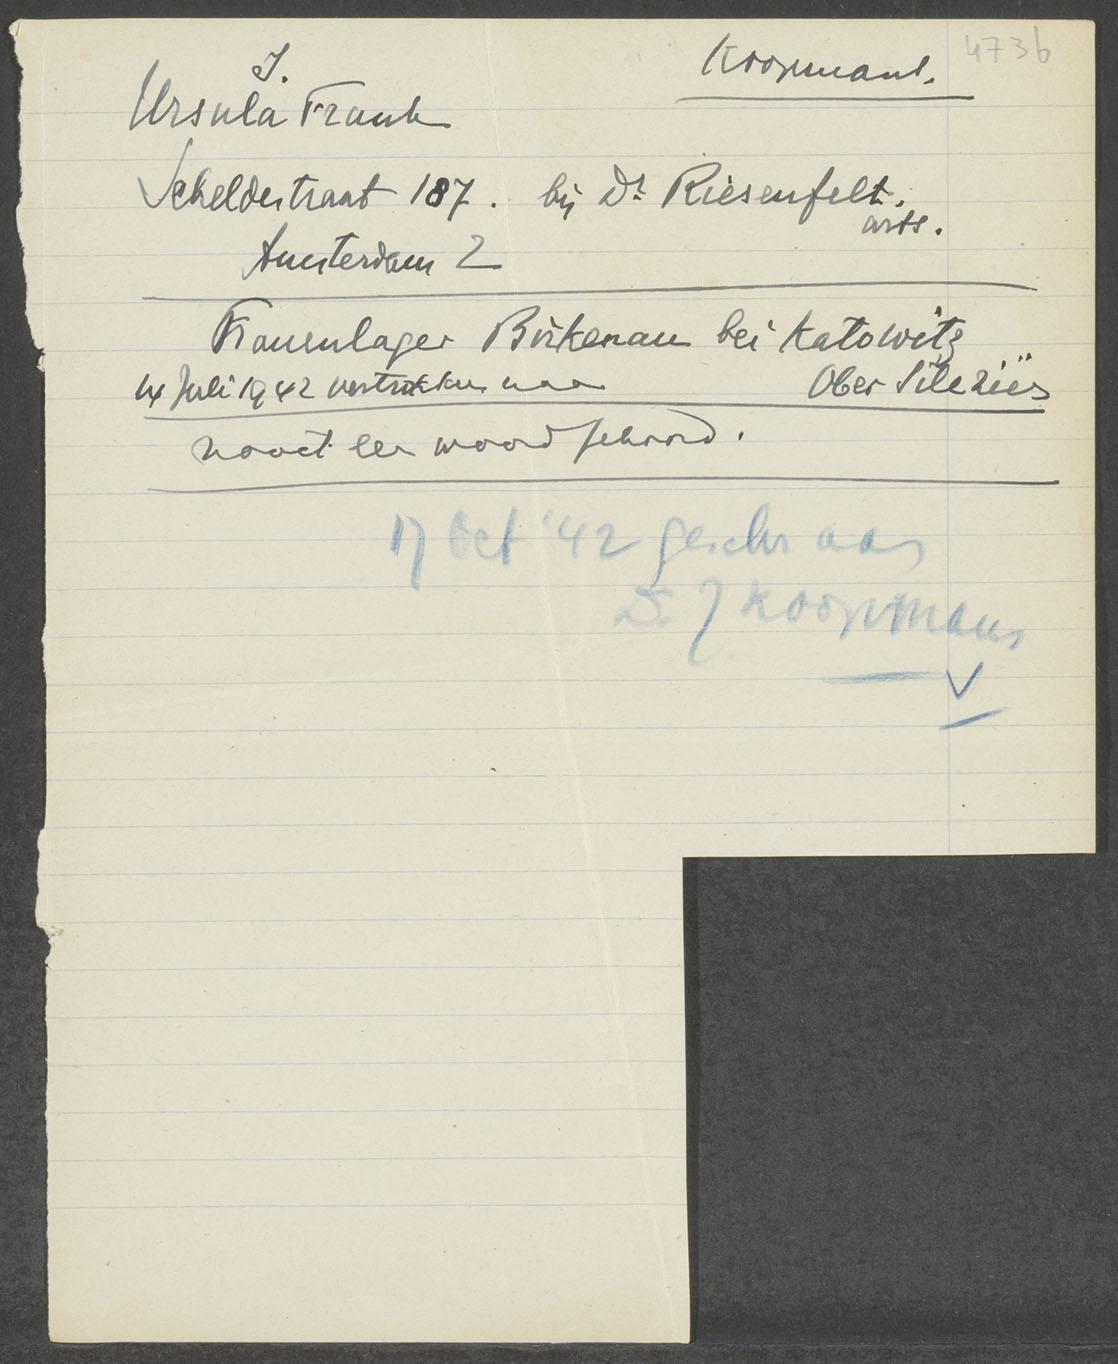 Koopmans. 4736
J.
Ursula Frank
Scheldestraat 187. bij Dr Riesenfelt.
arts.
Amsterdam Z
Frauenlager Birkenau bei Katowitz
14 Juli 1942 vertrokken naar Ober Sileziës
nooit een woord gehoord.
17 Oct '42 geschr aan
Dr J Koopmans
V